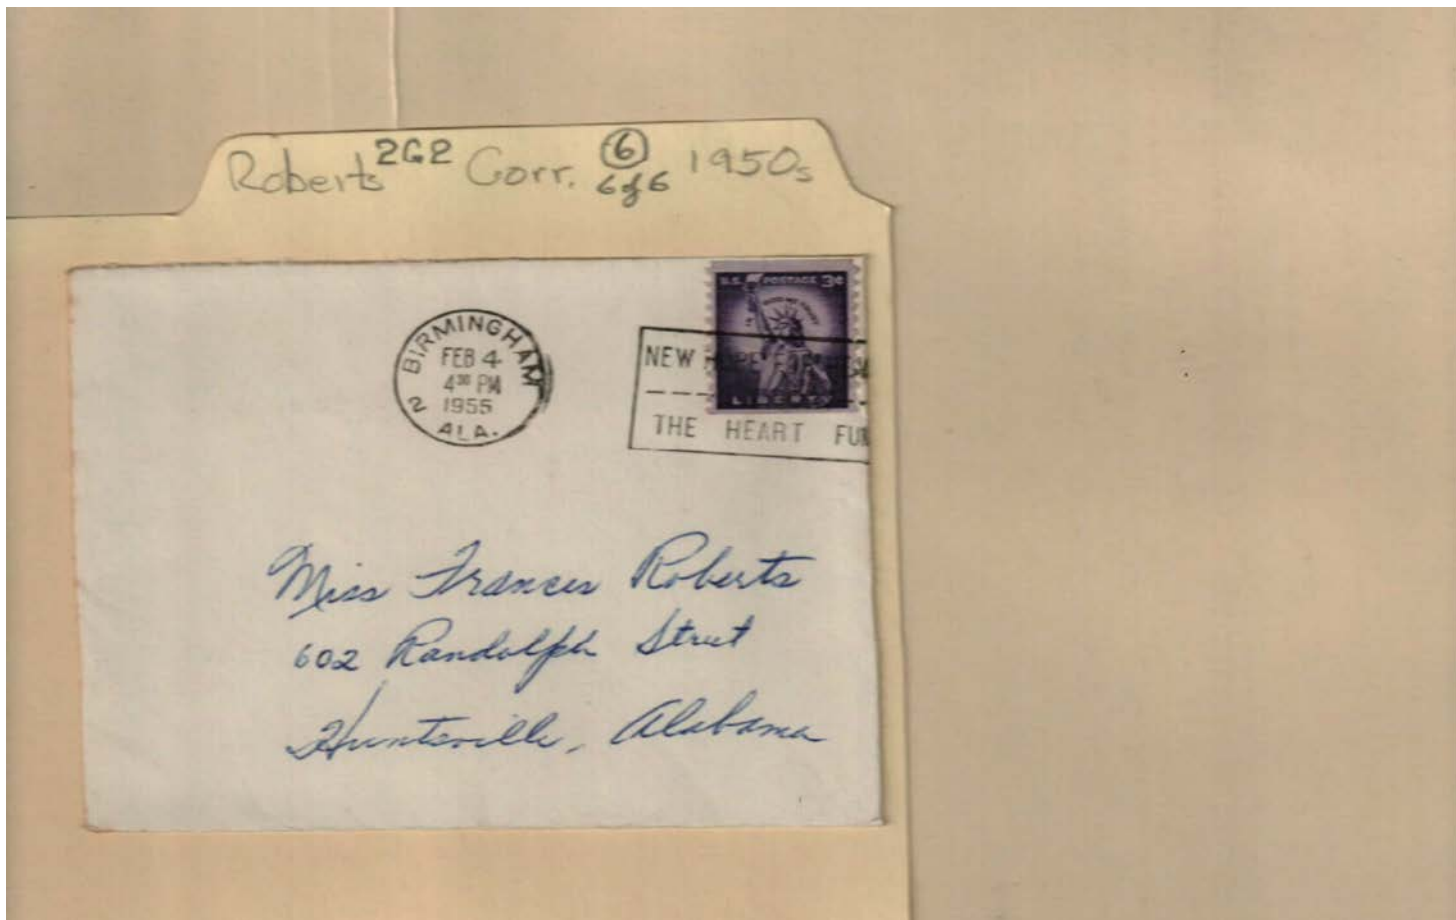 Roberts 2G2 Corr. 6 1950s
6 of 6
BIRMINGHAM
FEB 4
4³⁰ PM
1955
2 ALA.
U.S. POSTAGE 3¢
IN GOD WE TRUST
LIBERTY
NEW HOPE
THE HEART FUN
Miss Frances Roberts
602 Randolph Street
Huntsville, Alabama